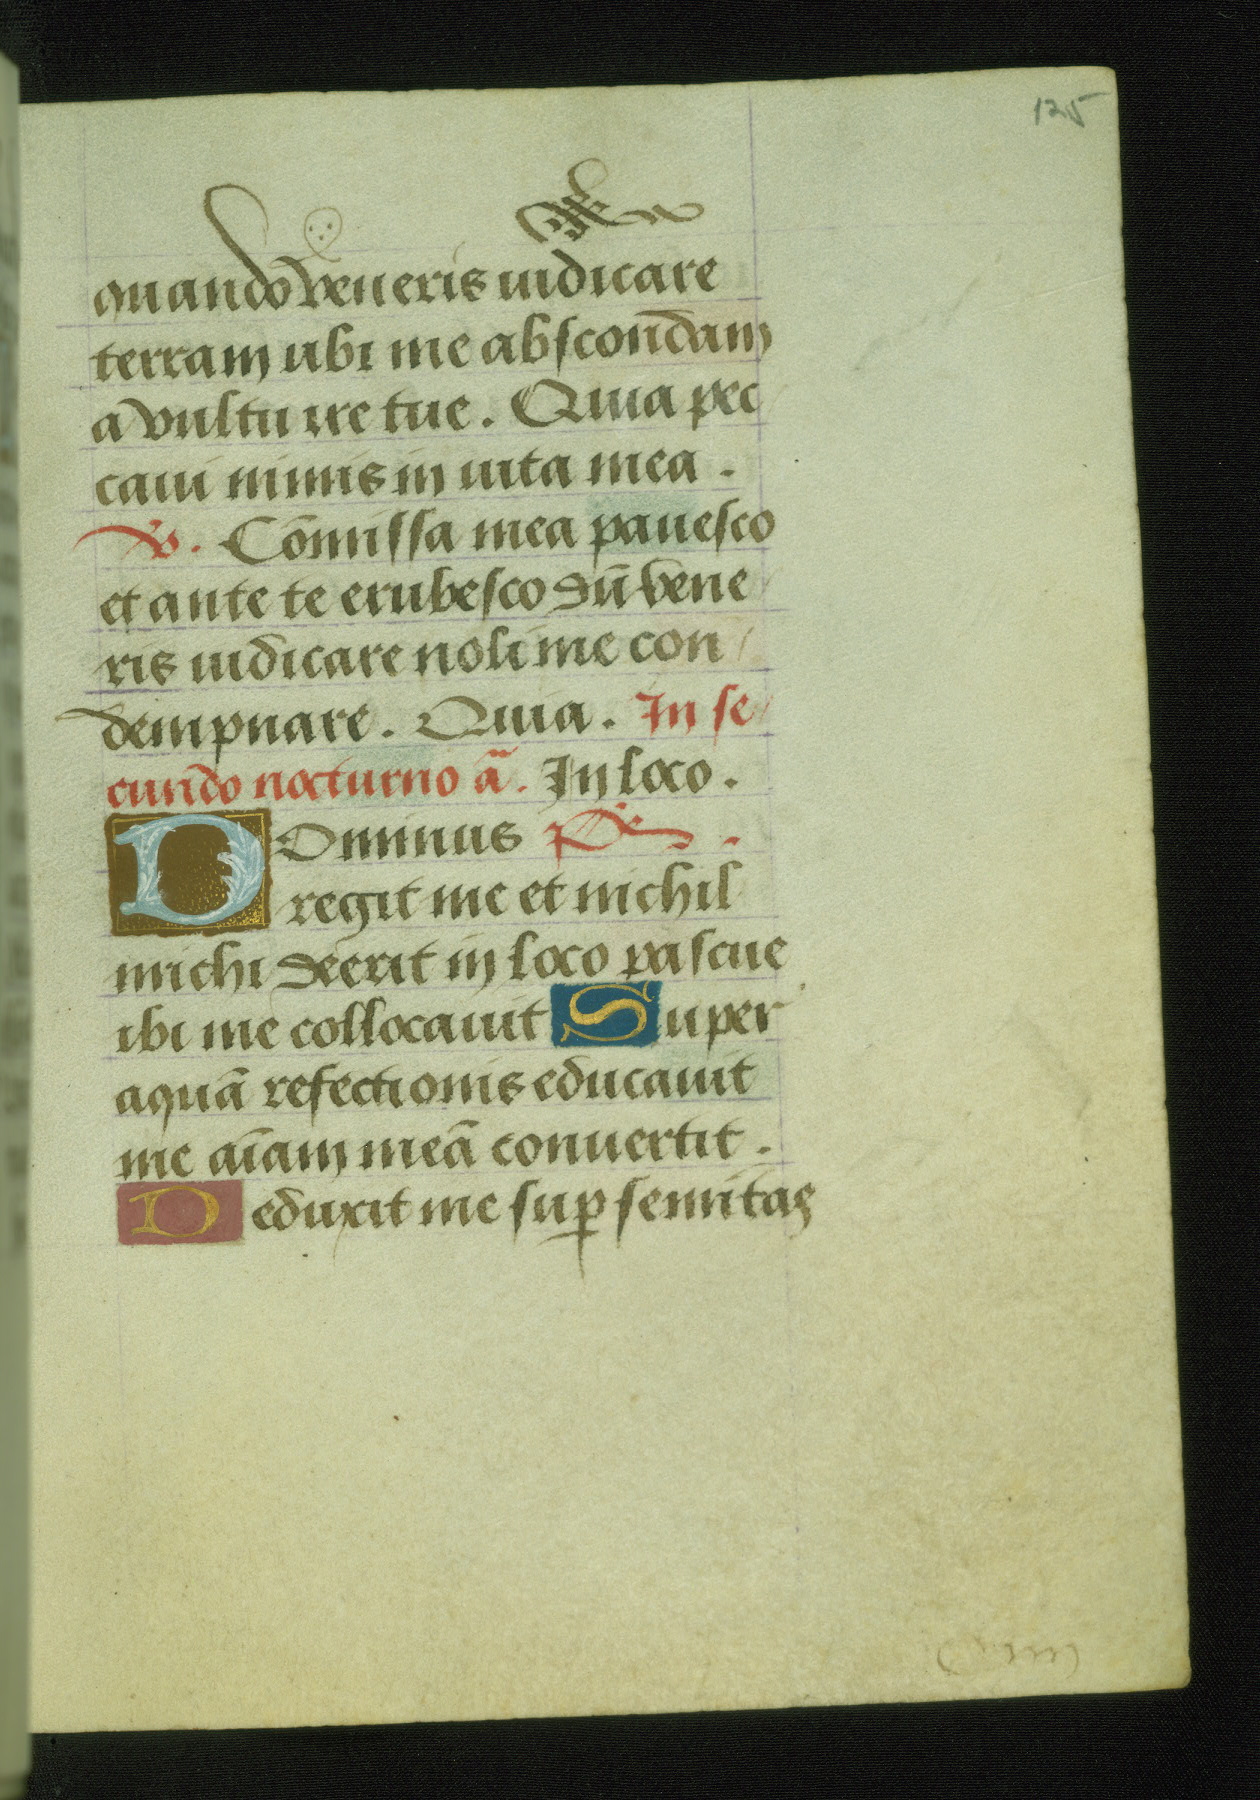 125
quando veneris iudicare
terram ubi me abscondam
a vultu ire tue. Quia pec
caui nimis in uita mea.
V. Cōmissa mea pauesco
et ante te erubesco dū vene
ris iudicare noli me con
dempnare. Quia. In se
cundo nocturno ā. In loco.
DOminus Ps.
regit me et nichil
michi deerit in loco pascue
ibi me collocauit Super
aquā refectionis educauit
me aīam meā conuertit.
Deduxit me suꝑ semitas